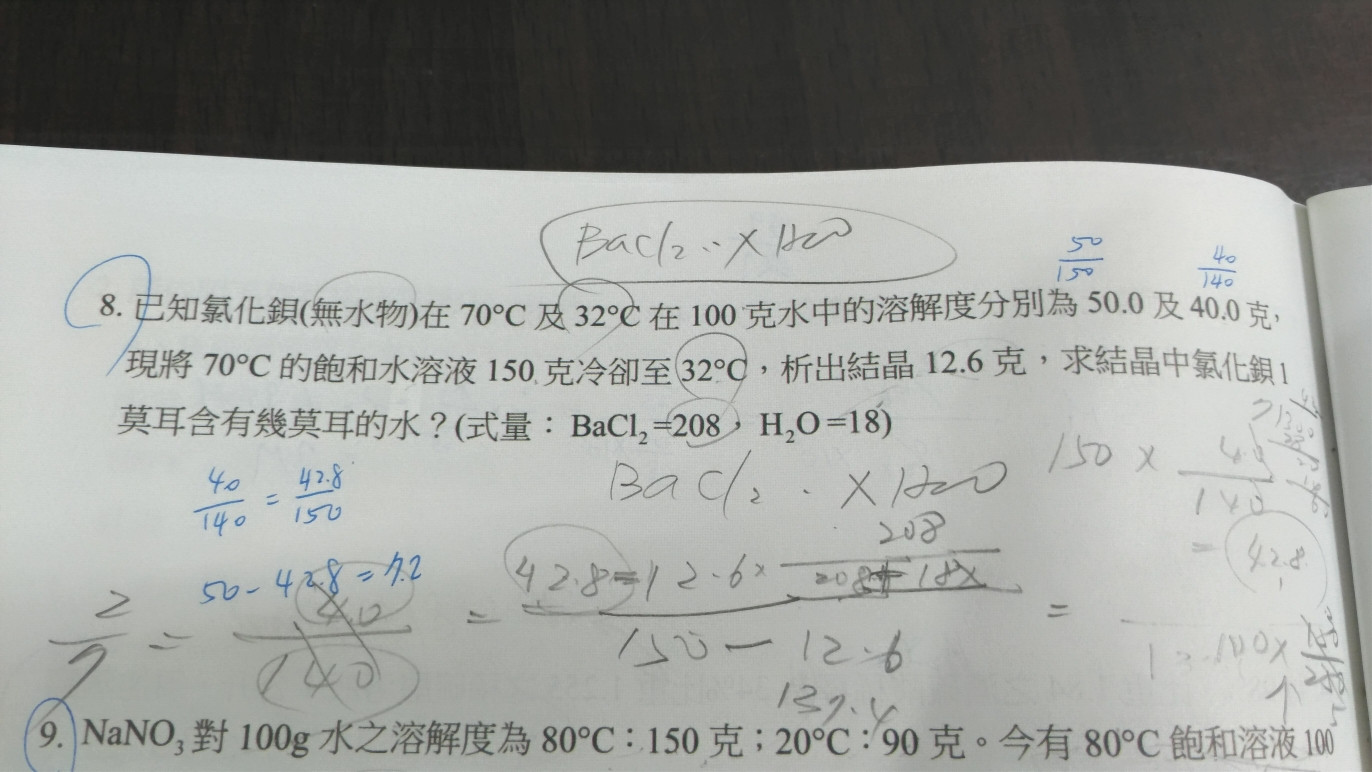 BaCl₂ · · X H₂O
50/150
40/140
8. 已知氯化鋇(無水物)在 70°C 及 32°C 在 100 克水中的溶解度分別為 50.0 及 40.0 克,
現將 70°C 的飽和水溶液 150 克冷卻至 32°C,析出結晶 12.6 克,求結晶中氯化鋇 1
莫耳含有幾莫耳的水?(式量: BaCl₂ =208, H₂O =18)
40/140 = 42.8/150
BaCl₂ · X H₂O
150 ×
140
= 42.8
50 - 42.8 = 7.2
2/7 = 40/140 = 42.8 = 12.6 × 208/208+18X =
150 - 12.6
137.4
9. NaNO₃ 對 100g 水之溶解度為 80°C:150 克;20°C:90 克。今有 80°C 飽和溶液 100